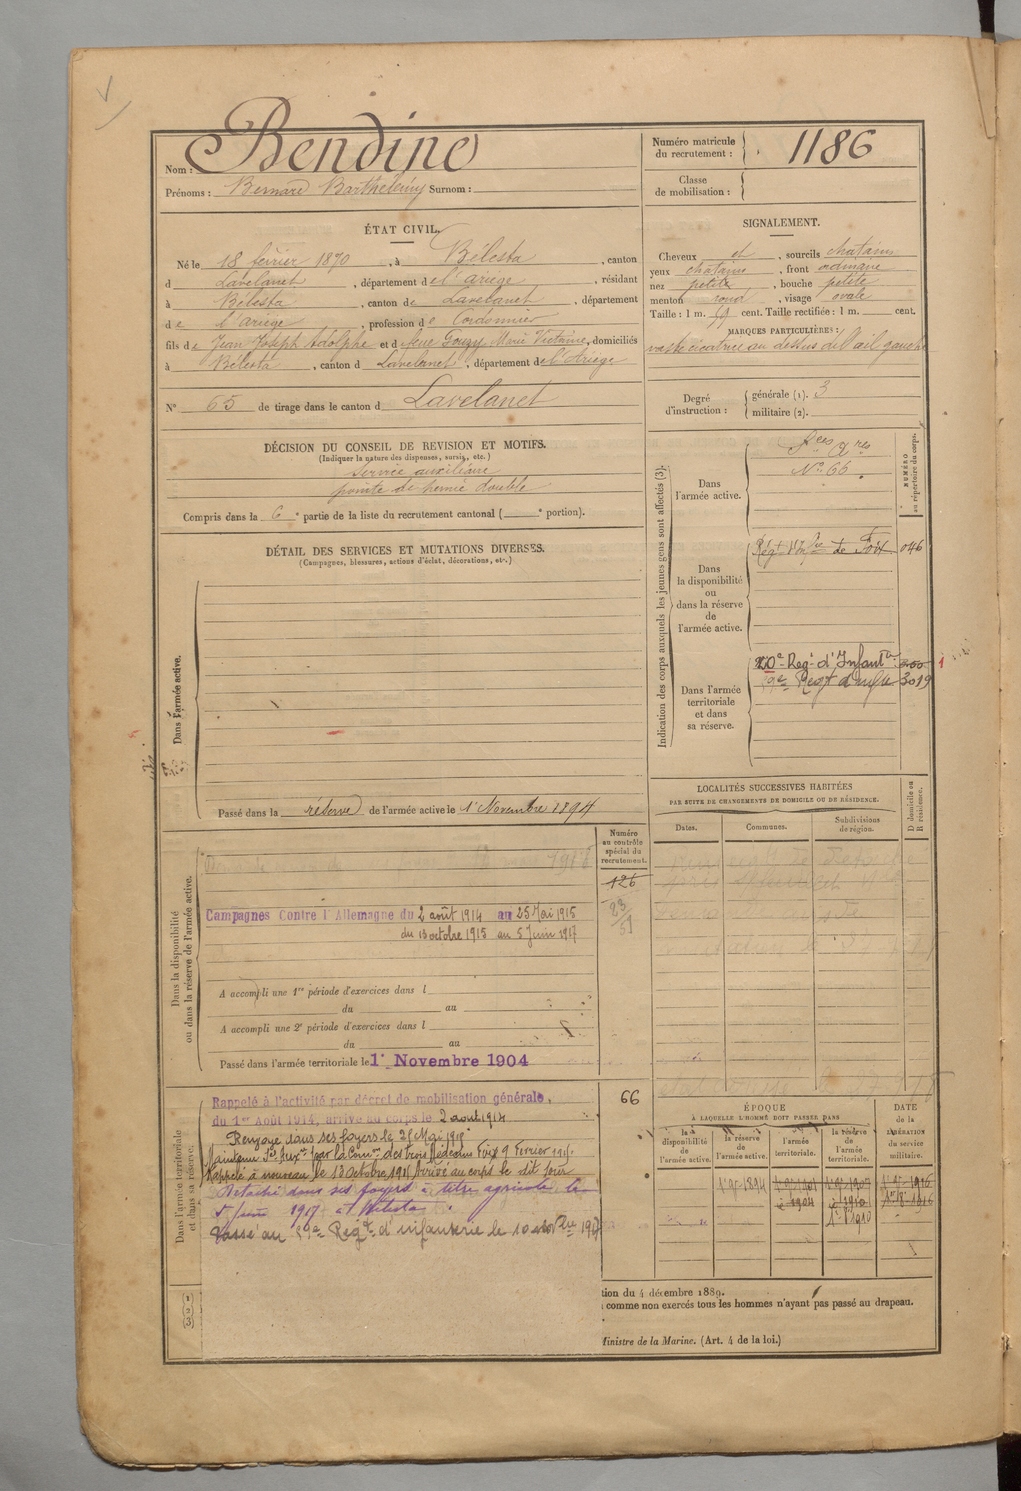 Nom : Bendine
Prénoms : Bernard Barthélemy Surnom :
Numéro matricule du recrutement : 1186
Classe de mobilisation :
ÉTAT CIVIL.
Né le 18 février 1870, à Bélesta, canton
d Lavelanet, département de l'ariège, résidant
à Bélesta, canton de Lavelanet, département
de l'ariège, profession de Cordonnier
fils de Jean Joseph Adolphe et de Gouzy Marie Victoire, domiciliés
à Bélesta, canton d Lavelanet, département de l'Ariège
N° 65 de tirage dans le canton d Lavelanet
SIGNALEMENT.
Cheveux et, sourcils chatains
yeux chatains, front ordinaire
nez petite, bouche petite
menton rond, visage ovale
Taille : 1 m. 59 cent. Taille rectifiée : 1 m. cent.
MARQUES PARTICULIÈRES :
vaste cicatrice au dessus de l'œil gauche
Degré d'instruction : générale (1). 3
militaire (2).
DÉCISION DU CONSEIL DE REVISION ET MOTIFS.
(Indiquer la nature des dispenses, sursis, etc.)
Service auxiliaire
pointe de hernie double
Compris dans la 6e partie de la liste du recrutement cantonal ( e portion).
DÉTAIL DES SERVICES ET MUTATIONS DIVERSES.
(Campagnes, blessures, actions d'éclat, décorations, etc.)
Dans l'armée active.
Passé dans la réserve de l'armée active le 1er Novembre 1894
Indication des corps auxquels les jeunes gens sont affectés (3).
NUMÉRO au répertoire du corps.
Dans l'armée active.
Sces Ares
N° 66
Dans la disponibilité ou dans la réserve de l'armée active.
Régt d'Infie de Foix 046
Dans l'armée territoriale et dans sa réserve.
Reg.t d'Infant.ie
59e Régt d'infie 3019
LOCALITÉS SUCCESSIVES HABITÉES
PAR SUITE DE CHANGEMENTS DE DOMICILE OU DE RÉSIDENCE.
Dates. Communes. Subdivisions de région. D domicile ou R résidence.
Dans la disponibilité ou dans la réserve de l'armée active.
Numéro au contrôle spécial du recrutement.
126
Campagnes Contre l'Allemagne du 2 août 1914 au 25 Mai 1915
du 13 octobre 1915 au 5 Juin 1917
A accompli une 1re période d'exercices dans l
du au
A accompli une 2e période d'exercices dans l
du au
Passé dans l'armée territoriale le 1er Novembre 1904
Dans l'armée territoriale et dans sa réserve.
66
Rappelé à l'activité par décret de mobilisation générale,
du 1er Août 1914, arrivé au corps le 2 aout 1914
Renvoyé dans ses foyers le 25 Mai 1915
Maintenu Sce Auxre par la Comon des trois Médecins Foix 9 Fevrier 1915
Rappelé à nouveau le 13 Octobre 1915 arrivé au corps le dit jour
Détaché dans ses foyers à titre agricole le
5 Juin 1917 à Bélesta.
Passé au 59e Régt d'infanterie le 10
ÉPOQUE
À LAQUELLE L'HOMME DOIT PASSER DANS
la disponibilité de l'armée active. la réserve de l'armée active. l'armée territoriale. la réserve de l'armée territoriale.
DATE de la LIBÉRATION du service militaire.
(1)
(2)
(3)
tion du 4 décembre 1889.
comme non exercés tous les hommes n'ayant pas passé au drapeau.
Ministre de la Marine. (Art. 4 de la loi.)